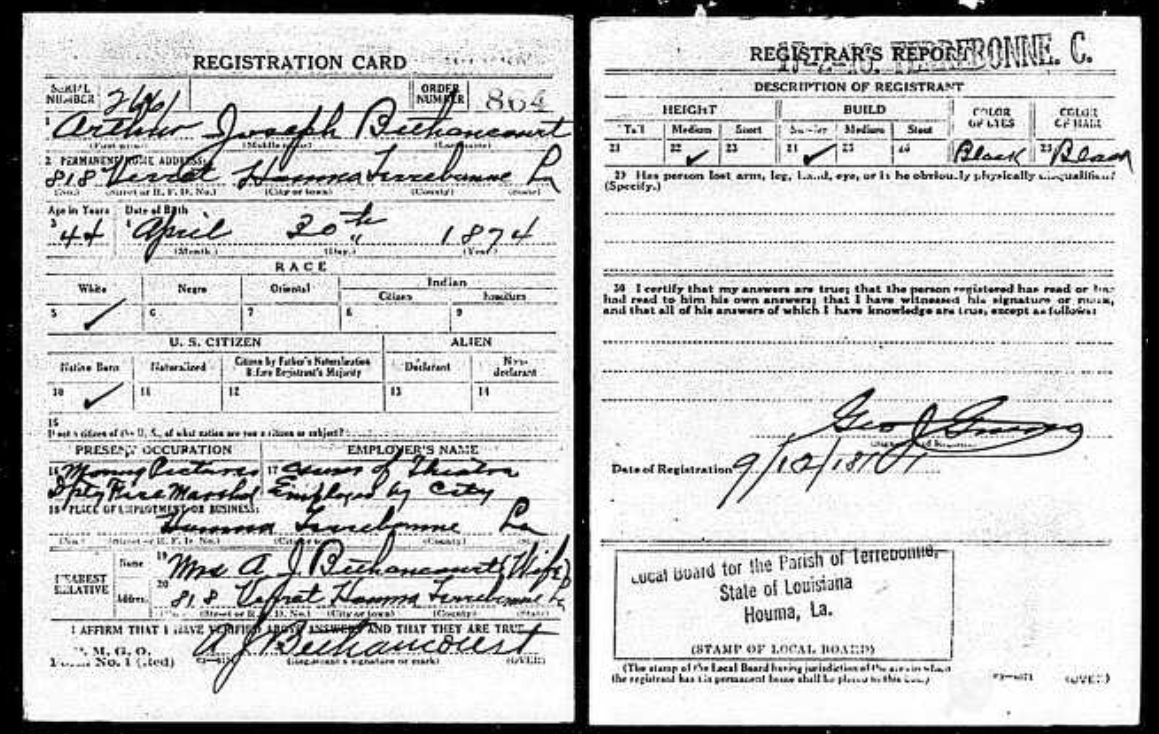 REGISTRATION CARD
SERIAL NUMBER
ORDER NUMBER 864
1 Arthur Joseph Bethancourt
(First name) (Middle name) (Last name)
2 PERMANENT HOME ADDRESS:
818 Verret Houma Terrebonne La
(No.) (Street or R. F. D. No.) (City or town) (County) (State)
Age in Years Date of Birth
3 44 4 April 30th 1874
(Month.) (Day.) (Year.)
RACE
White Negro Oriental Indian
Citizen Noncitizen
5 ✓ 6 7 8 9
U. S. CITIZEN ALIEN
Native Born Naturalized Citizen by Father's Naturalization Before Registrant's Majority Declarant Non-declarant
10 ✓ 11 12 13 14
15
If not a citizen of the U. S., of what nation are you a citizen or subject?
PRESENT OCCUPATION EMPLOYER'S NAME
16 Moving Pictures 17 Owner of Theatre
Dpty Fire Marshal Employed by City
18 PLACE OF EMPLOYMENT OR BUSINESS:
Houma Terrebonne La
(No.) (Street or R. F. D. No.) (City or town) (County) (State)
NEAREST RELATIVE
Name 19 Mrs A. J. Bethancourt (Wife)
Address 20 818 Verret Houma Terrebonne La
(No.) (Street or R. F. D. No.) (City or town) (County) (State)
I AFFIRM THAT I HAVE VERIFIED ABOVE ANSWERS AND THAT THEY ARE TRUE
P. M. G. O.
Form No. 1 (Red)
A J Bethancourt
(Registrant's signature or mark) (OVER)
REGISTRAR'S REPORT
TERREBONNE. C.
DESCRIPTION OF REGISTRANT
HEIGHT BUILD COLOR OF EYES COLOR OF HAIR
Tall Medium Short Slender Medium Stout
21 22 ✓ 23 24 ✓ 25 26 Black 28 Black
29 Has person lost arm, leg, hand, eye, or is he obviously physically disqualified?
(Specify.)
30 I certify that my answers are true; that the person registered has read or has
had read to him his own answers; that I have witnessed his signature or mark,
and that all of his answers of which I have knowledge are true, except as follows:
Geo J
Date of Registration 9/12/18
Local Board for the Parish of Terrebonne,
State of Louisiana
Houma, La.
(STAMP OF LOCAL BOARD)
(The stamp of the Local Board having jurisdiction of the area in which
the registrant has his permanent home shall be placed in this box.)
(OVER)